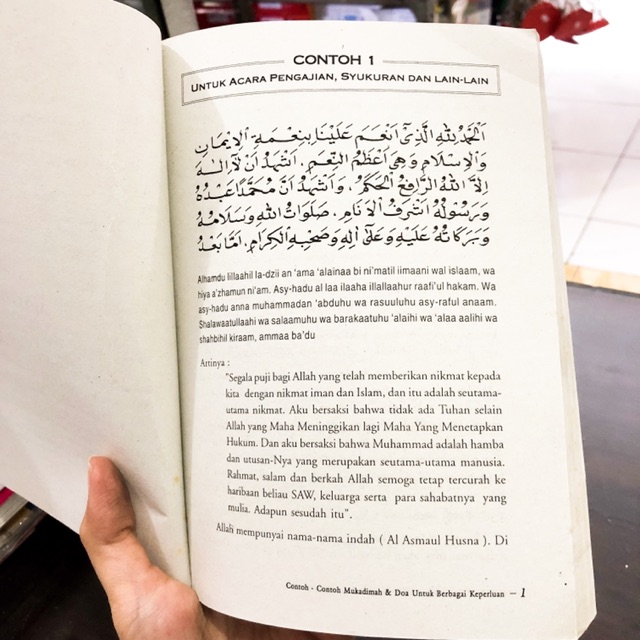 CONTOH 1
UNTUK ACARA PENGAJIAN, SYUKURAN DAN LAIN-LAIN
اَلْحَمْدُ لِلّٰهِ الَّذِيْ اَنْعَمَ عَلَيْنَا بِنِعْمَةِ الْاِيْمَانِ
وَالْاِسْلَامِ وَهِيَ اَعْظَمُ النِّعَمِ. اَشْهَدُ اَنْ لَا اِلٰهَ
اِلَّا اللهُ الرَّافِعُ الْحَكَمُ، وَاَشْهَدُ اَنَّ مُحَمَّدًا عَبْدُهُ
وَرَسُوْلُهُ اَشْرَفُ الْاَنَامِ. صَلَوَاتُ اللهِ وَسَلَامُهُ
وَبَرَكَاتُهُ عَلَيْهِ وَعَلَى اٰلِهِ وَصَحْبِهِ الْكِرَامِ. اَمَّا بَعْدُ
Alhamdu lillaahil la-dzii an 'ama 'alainaa bi ni'matil iimaani wal islaam, wa
hiya a'zhamun ni'am. Asy-hadu al laa ilaaha illallaahur raafi'ul hakam. Wa
asy-hadu anna muhammadan 'abduhu wa rasuuluhu asy-raful anaam.
Shalawaatullaahi wa salaamuhu wa barakaatuhu 'alaihi wa 'alaa aalihi wa
shahbihil kiraam, ammaa ba'du
Artinya :
"Segala puji bagi Allah yang telah memberikan nikmat kepada
kita dengan nikmat iman dan Islam, dan itu adalah seutama-
utama nikmat. Aku bersaksi bahwa tidak ada Tuhan selain
Allah yang Maha Meninggikan lagi Maha Yang Menetapkan
Hukum. Dan aku bersaksi bahwa Muhammad adalah hamba
dan utusan-Nya yang merupakan seutama-utama manusia.
Rahmat, salam dan berkah Allah semoga tetap tercurah ke
haribaan beliau SAW, keluarga serta para sahabatnya yang
mulia. Adapun sesudah itu".
Allah mempunyai nama-nama indah ( Al Asmaul Husna ). Di
Contoh - Contoh Mukadimah & Doa Untuk Berbagai Keperluan – 1